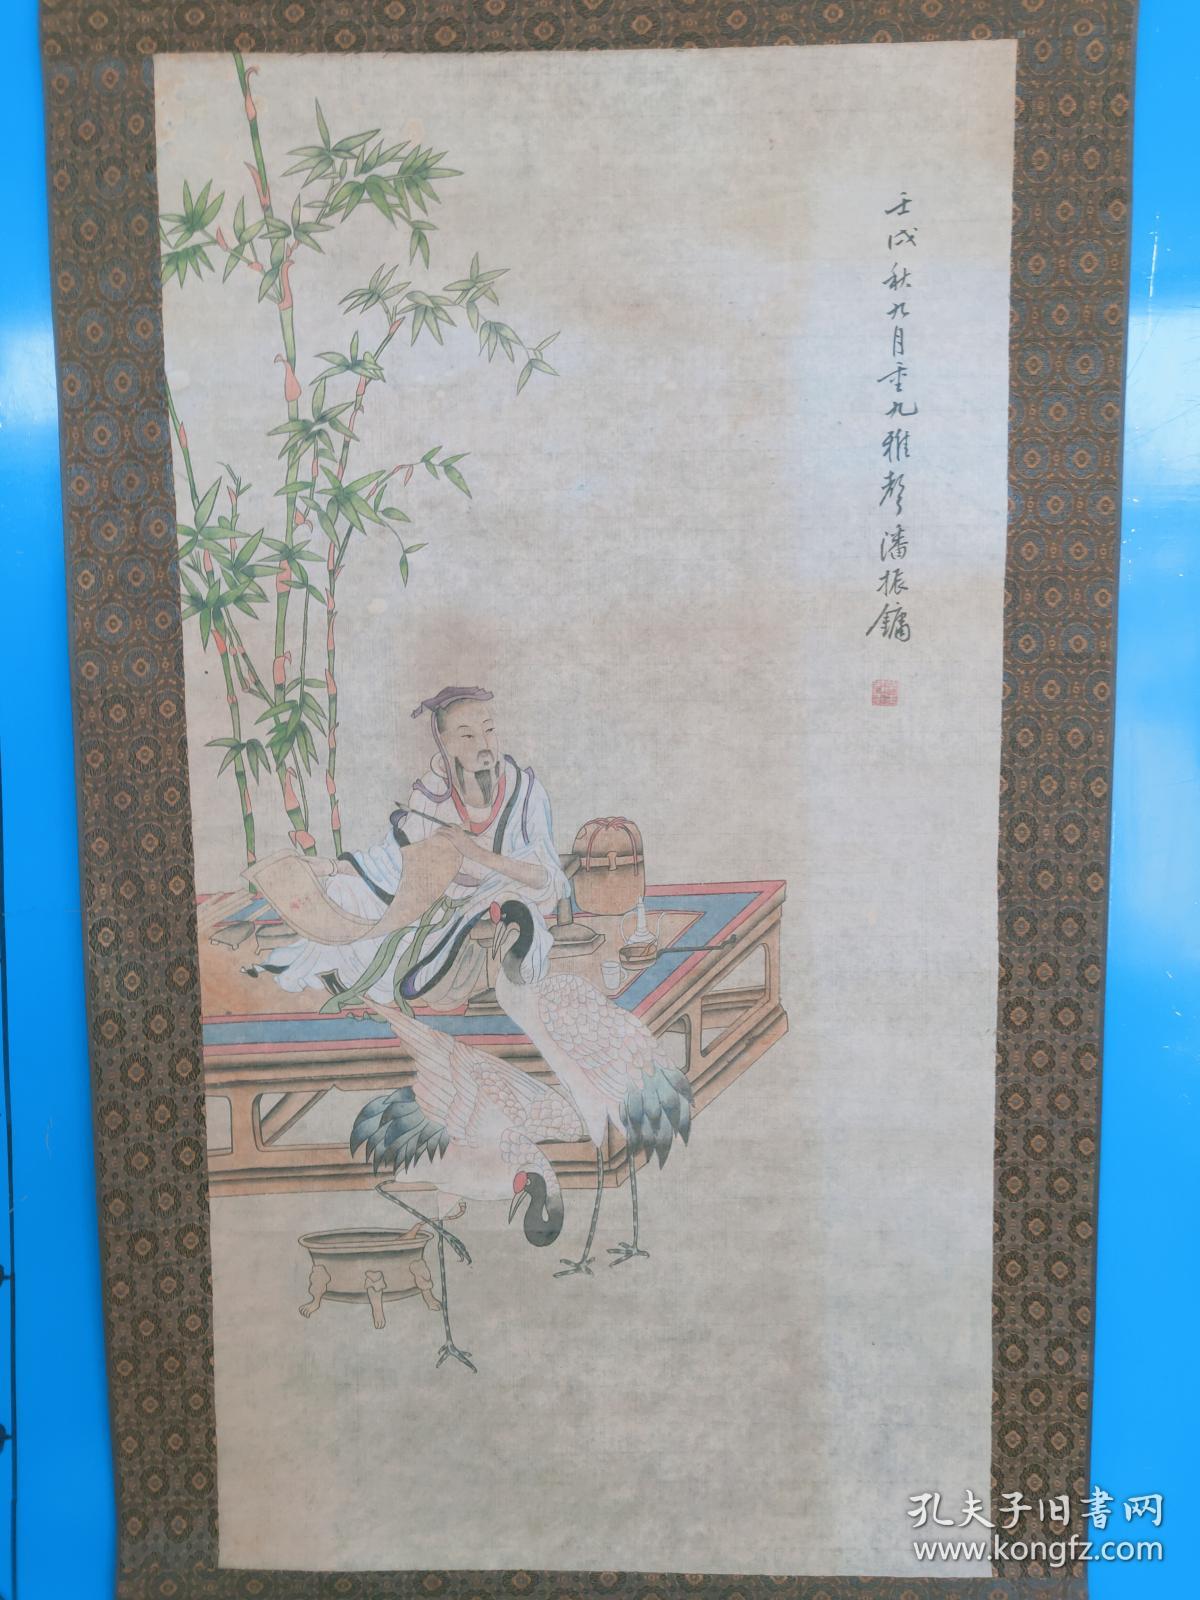 壬戌秋九月重九雅聲潘振鏞
孔夫子旧書网
www.kongfz.com